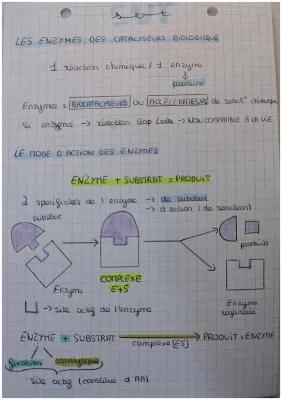 LES ENZYMES, DES CATALYSEURS BIOLOGIQUE
1 réaction chimique / 1 enzyme
protéine
Enzymes = BIOCATALYSEURS OU ACCÉLÉRATEURS de react° chimique
Si enzymes → réaction trop lente → NON COMPATIBLE À LA VIE
LE MODE D'ACTION DES ENZYMES
ENZYME + SUBSTRAT = PRODUIT
2 spécificités de l'enzyme → de substrat
→ d'action (de réaction)
substrat
produits
Enzyme
COMPLEXE
E+S
Enzyme
→ site actif de l'enzyme
ENZYME + SUBSTRAT → PRODUIT + ENZYME
complexe [ES]
fixation catalytique
Site actif (constitué d'AA)